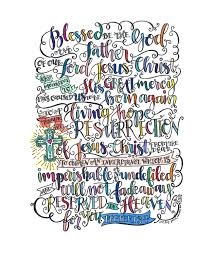 Blessed be the God
and father
of our Lord Jesus Christ
who according to His great mercy
has caused us to be born again
to a living hope
through the
RESURRECTION
of Jesus Christ from the dead
TO OBTAIN AN INHERITANCE WHICH IS
imperishable & undefiled
& will not fade away
RESERVED in HEAVEN
for you